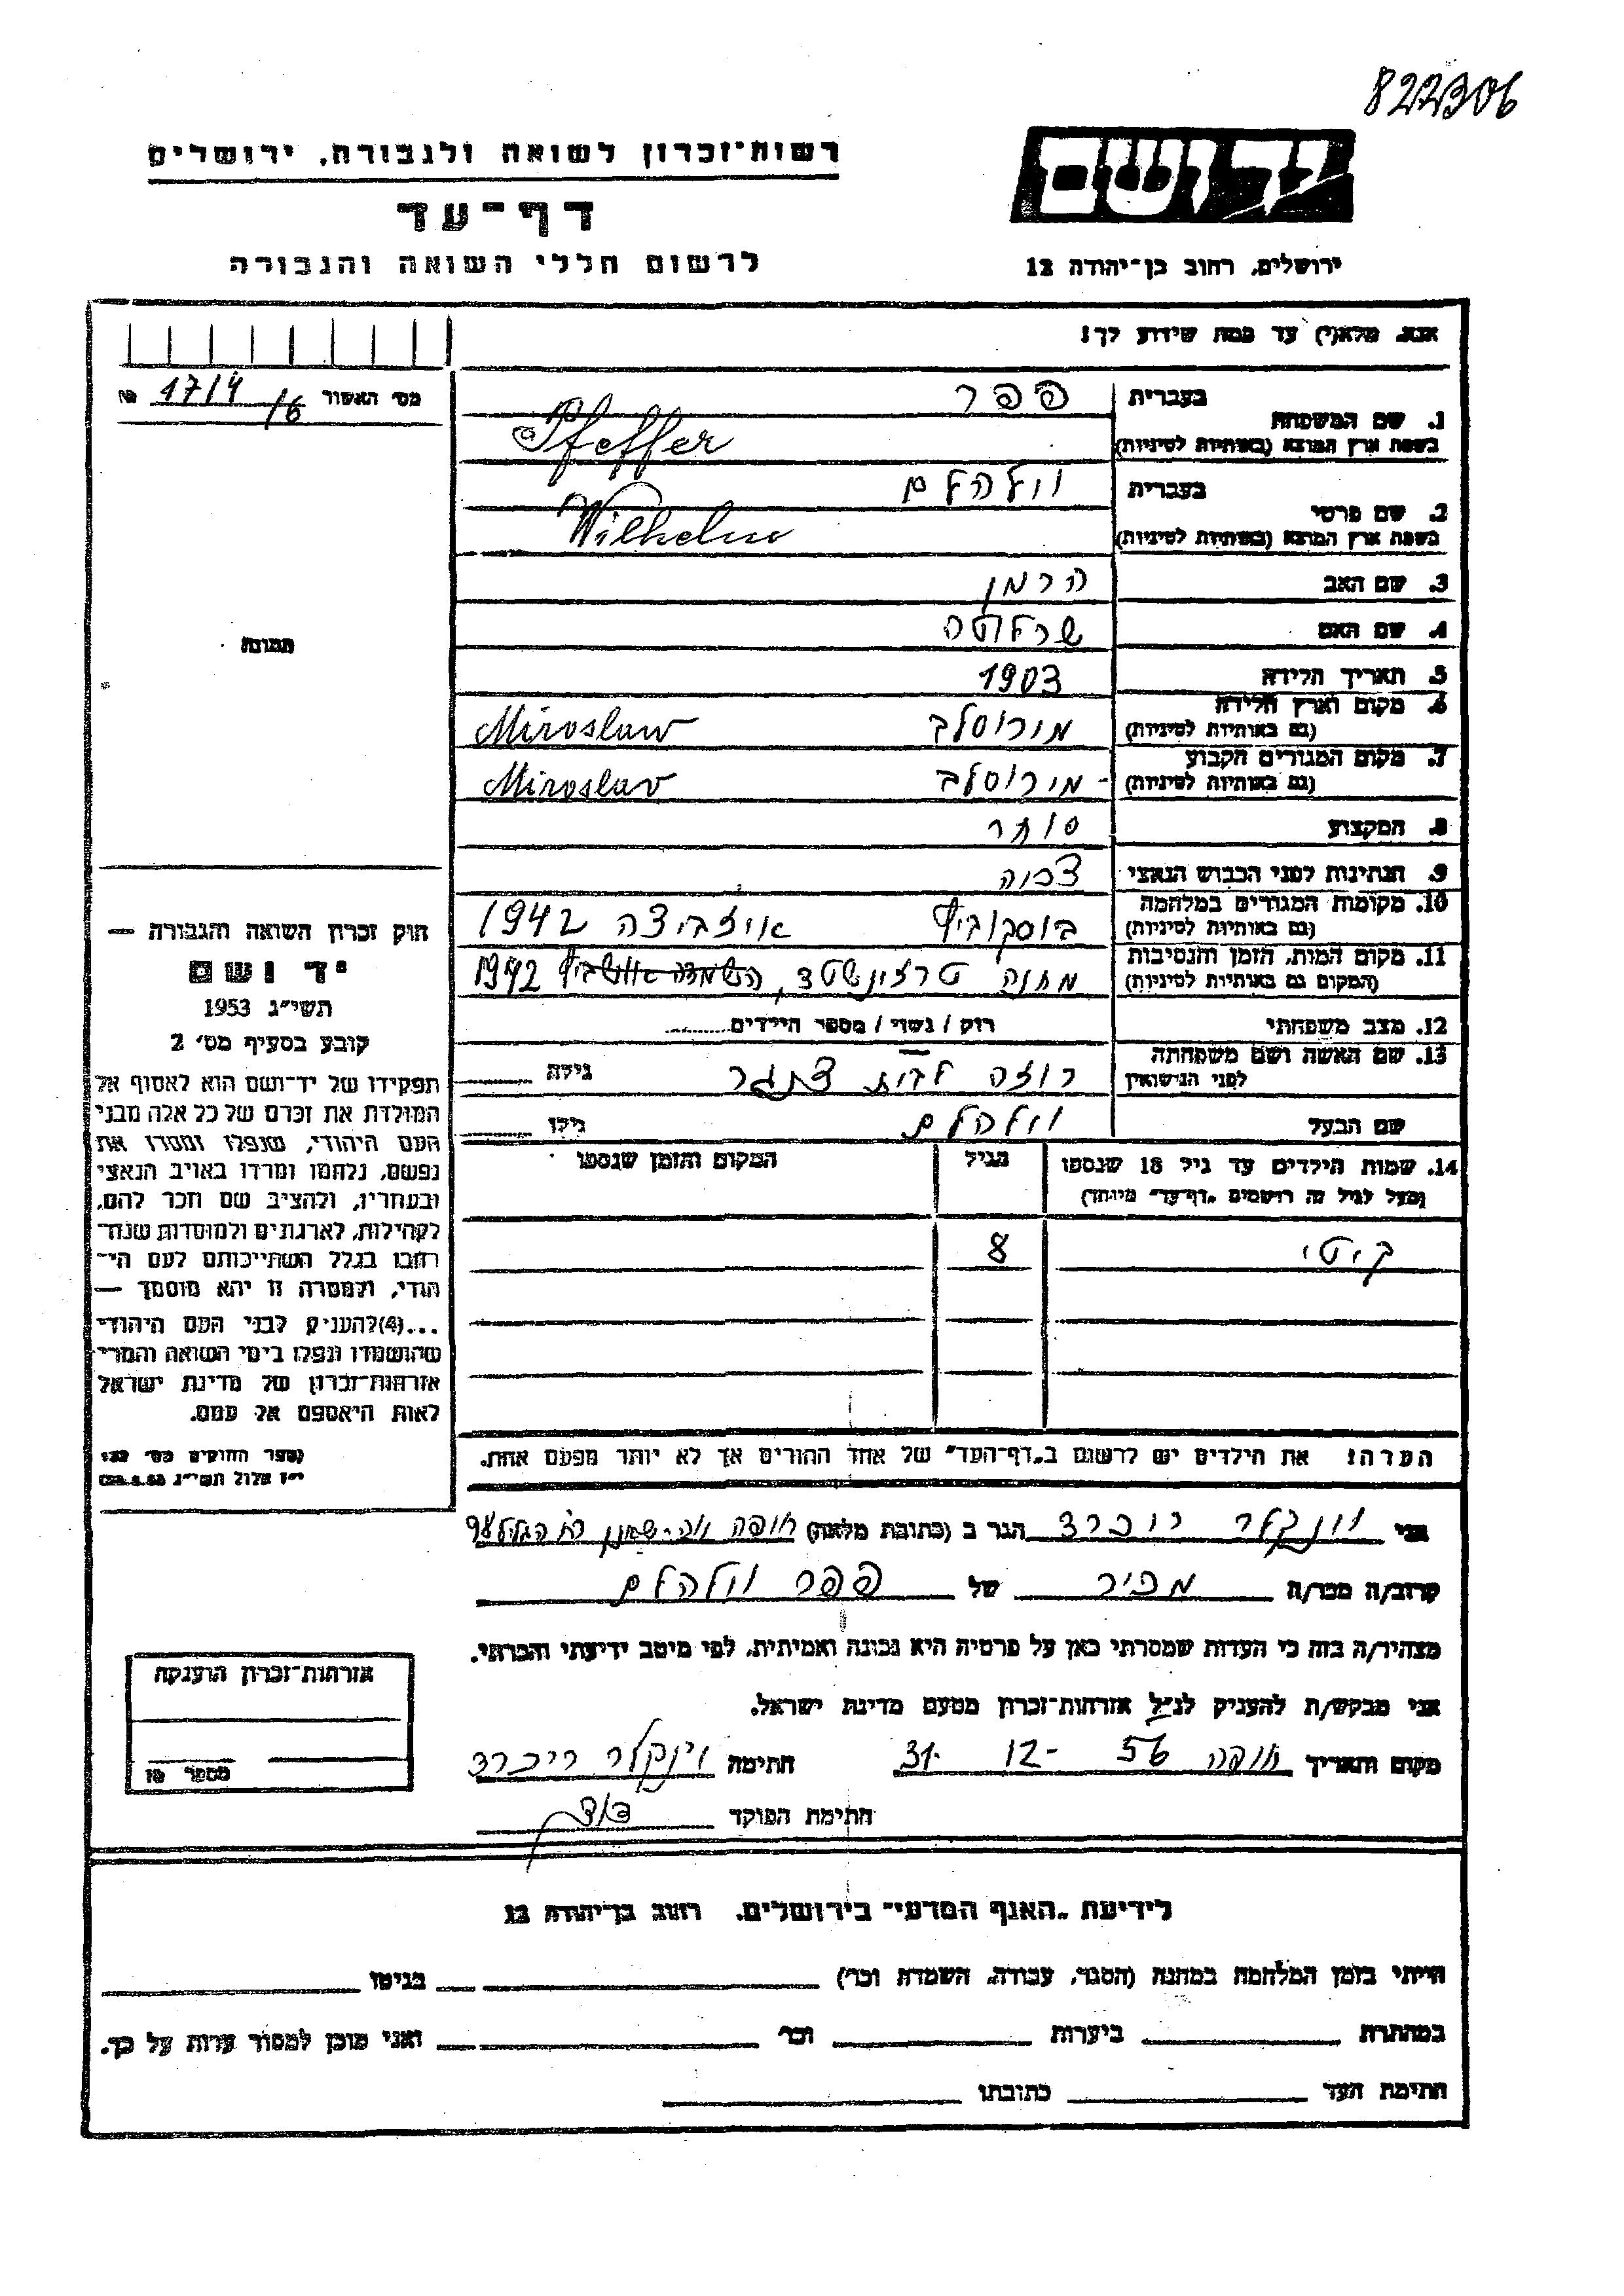 822306
רשות־זכרון לשואה ולגבורה, ירושלים
יד ושם
דף־עד
לרשום חללי השואה והגבורה
ירושלים, רחוב בן־יהודה 12
אנא, מלא(י) עד כמה שידוע לך!
מס׳ האשור 17/4/6 №
1. שם המשפחה
בעברית פפר
בשפת ארץ המוצא (באותיות לטיניות) Pfeffer
2. שם פרטי
בעברית וילהלם
בשפת ארץ המוצא (באותיות לטיניות) Wilhelm
3. שם האב הרמן
4. שם האם שרלוטה
תמונה
5. תאריך הלידה 1903
6. מקום וארץ הלידה
(גם באותיות לטיניות) מירוסלב Miroslaw
7. מקום המגורים הקבוע
(גם באותיות לטיניות) מירוסלב Miroslav
8. המקצוע סוחר
9. הנתינות לפני הכבוש הנאצי צכיה
10. מקומות המגורים במלחמה
(גם באותיות לטיניות) בוסקוביץ איזביצה 1942
11. מקום המות, הזמן והנסיבות
(המקום גם באותיות לטיניות) מחנה טרזינשטד, 1942
12. מצב משפחתי רוק / נשוי / מספר הילדים
13. שם האשה ושם משפחתה
לפני הנישואין רוזה לבית גילה
שם הבעל וילהלם גילו
14. שמות הילדים עד גיל 18 שנספו
(מעל לגיל זה רושמים „דף־עד״ מיוחד)
הגיל
המקום והזמן שנספו
קיטי 8
הערה! את הילדים יש לרשום ב„דף־העד״ של אחד ההורים אך לא יותר מפעם אחת.
חוק זכרון השואה והגבורה —
יד ושם
תשי״ג 1953
קובע בסעיף מס׳ 2
תפקידו של יד־ושם הוא לאסוף אל
המולדת את זכרם של כל אלה מבני
העם היהודי, שנפלו ומסרו את
נפשם, נלחמו ומרדו באויב הנאצי
ובעוזריו, ולהציב שם וזכר להם,
לקהילות, לארגונים ולמוסדות שנח־
רבו בגלל השתייכותם לעם הי־
הודי, ולמטרה זו יהא מוסמך —
...(4) להעניק לבני העם היהודי
שהושמדו ונפלו בימי השואה והמרי
אזרחות־זכרון של מדינת ישראל
לאות היאספם אל עמם.
(ספר החוקים מס׳ 132
י״ז אלול תשי״ג 28.8.53)
אני וינקלר ריכרד הגר ב (כתובת מלאה) חיפה
קרוב/ה מכר/ה מכיר של פפר וילהלם
מצהיר/ה בזה כי העדות שמסרתי כאן על פרטיה היא נכונה ואמיתית, לפי מיטב ידיעתי והכרתי.
אני מבקש/ת להעניק לנ״ל אזרחות־זכרון מטעם מדינת ישראל.
מקום ותאריך חיפה 31-12-56 חתימה וינקלר ריכרד
חתימת הפוקד
אזרחות־זכרון הוענקה
מספר
לידיעת „האגף המדעי״ בירושלים, רחוב בן־יהודה 12
הייתי בזמן המלחמה במחנה (הסגר, עבודה, השמדה וכו׳) בגיטו
במחתרת ביערות וכו׳ ואני מוכן למסור עדות על כך.
חתימת העד כתובתו